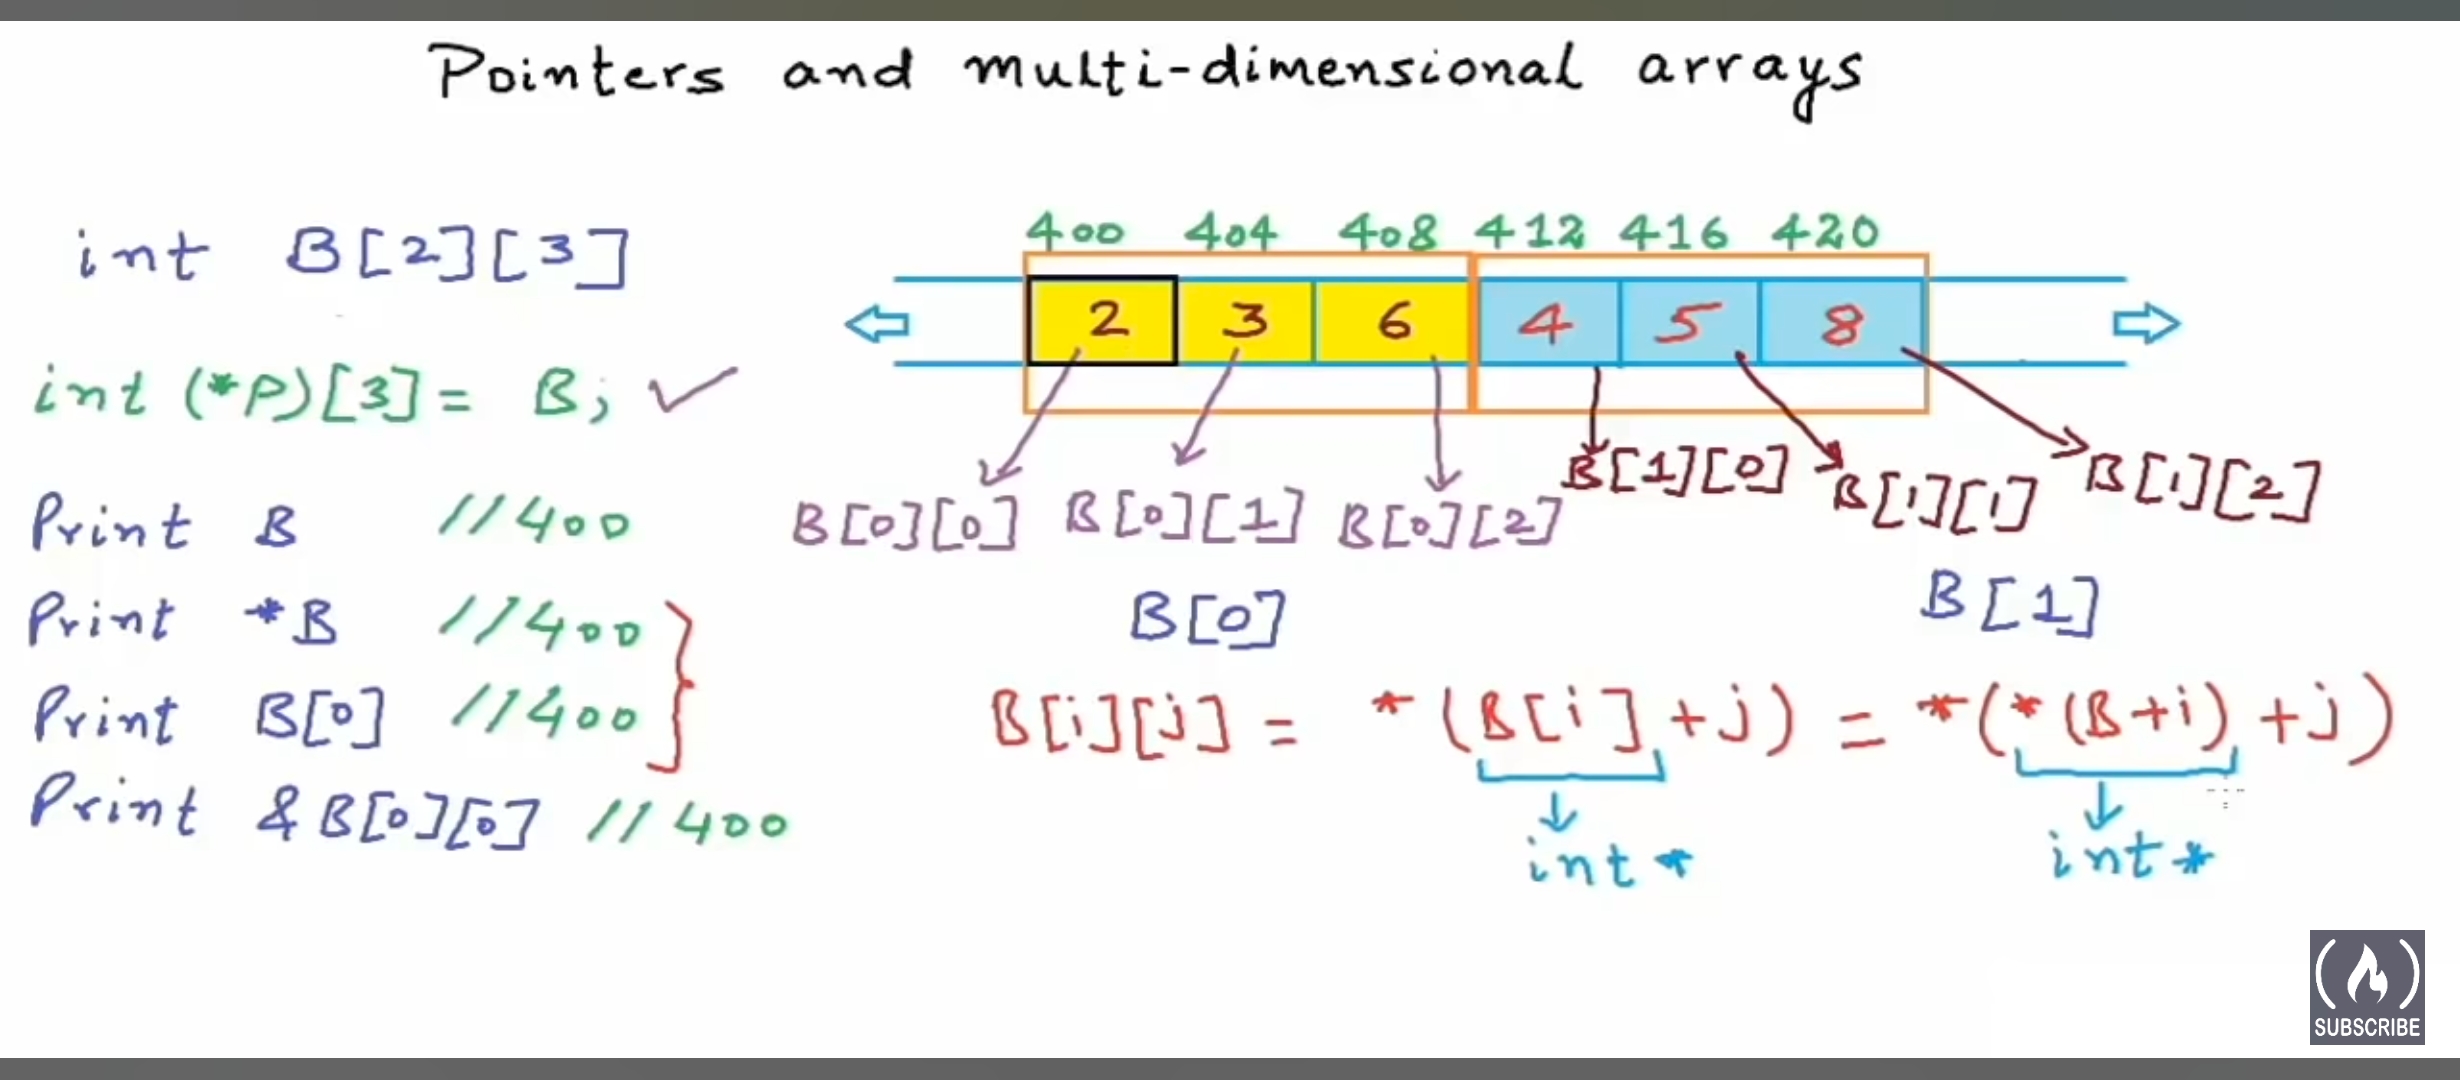 Pointers and multi-dimensional arrays
int B[2][3]
int (*P)[3] = B; ✓
Print B //400
Print *B //400
Print B[0] //400
Print &B[0][0] //400
400 404 408 412 416 420
2 3 6 4 5 8
B[0][0] B[0][1] B[0][2] B[1][0] B[1][1] B[1][2]
B[0] B[1]
B[i][j] = *(B[i]+j) = *(*(B+i)+j)
int* int*
SUBSCRIBE